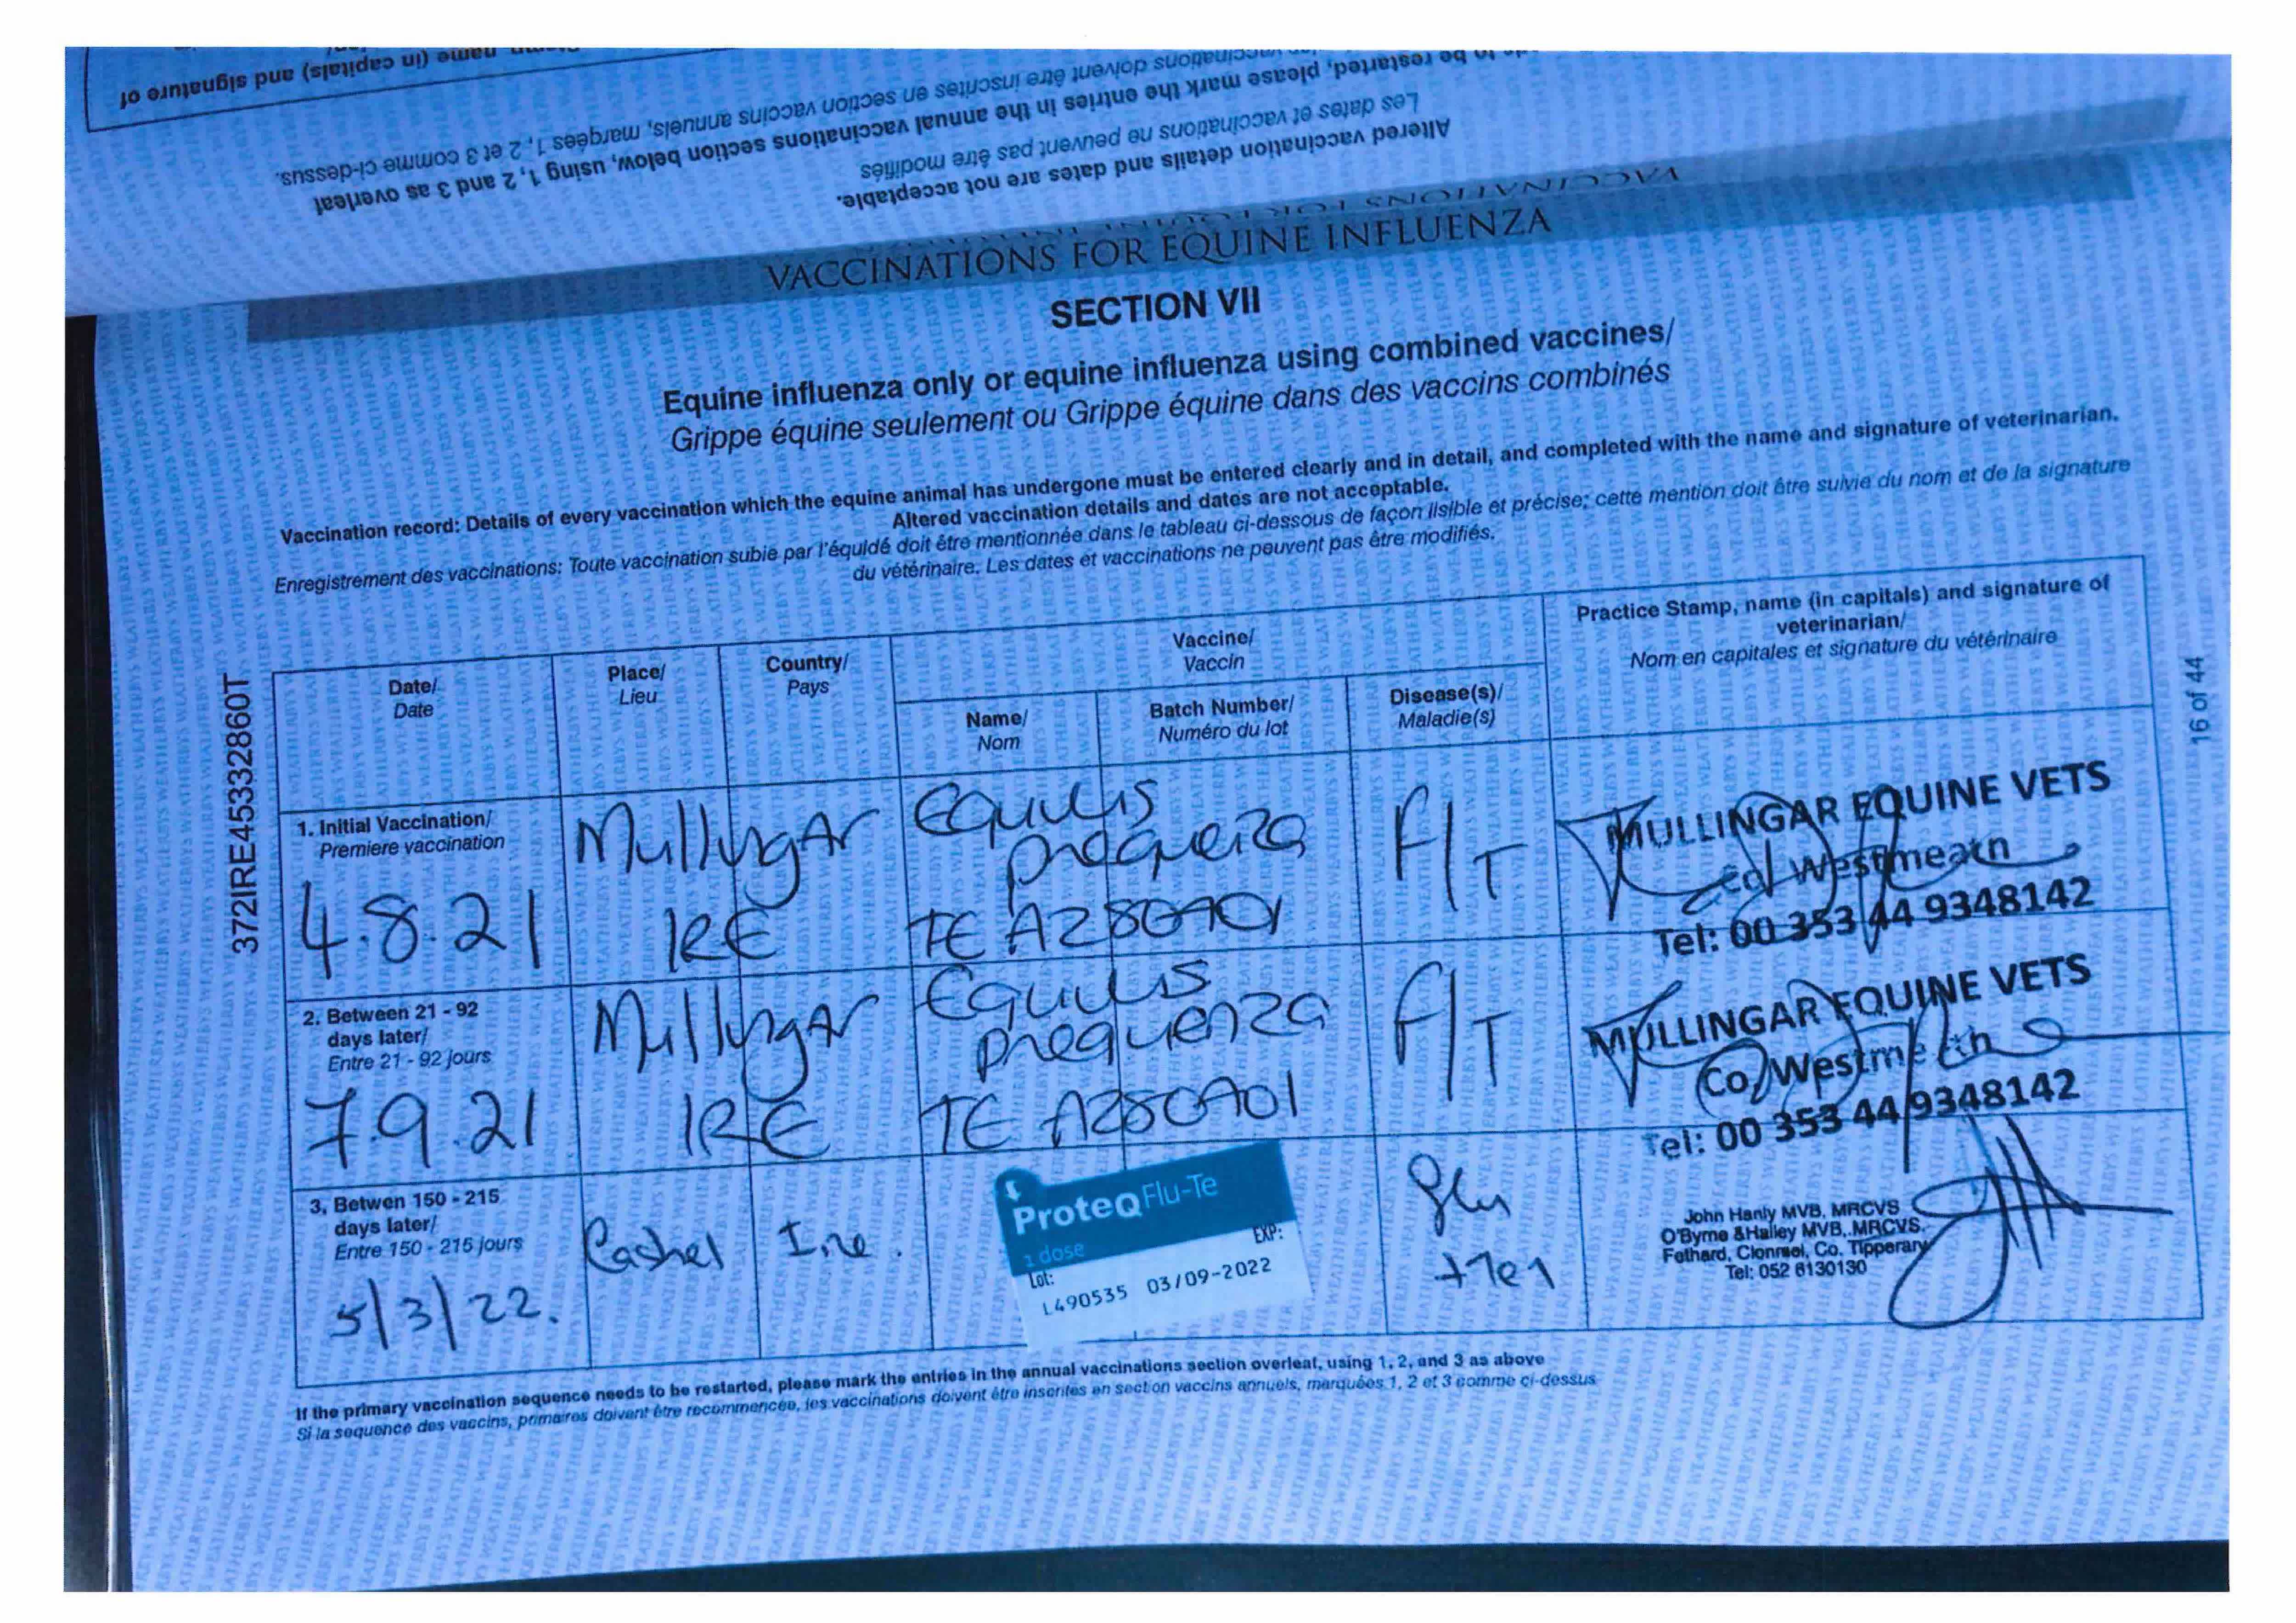 Stamp, name (in capitals) and signature of
vaccinations doivent être inscrites en section vaccins annuels, marquées 1, 2 et 3 comme ci-dessus.
to be restarted, please mark the entries in the annual vaccinations section below, using 1, 2 and 3 as overleaf
Les dates et vaccinations ne peuvent pas être modifiés
Altered vaccination details and dates are not acceptable.
VACCINATIONS FOR EQUINE INFLUENZA
SECTION VII
Equine influenza only or equine influenza using combined vaccines/
Grippe équine seulement ou Grippe équine dans des vaccins combinés
Vaccination record: Details of every vaccination which the equine animal has undergone must be entered clearly and in detail, and completed with the name and signature of veterinarian.
Altered vaccination details and dates are not acceptable.
Enregistrement des vaccinations: Toute vaccination subie par l'équidé doit être mentionnée dans le tableau ci-dessous de façon lisible et précise; cette mention doit être suivie du nom et de la signature
du vétérinaire. Les dates et vaccinations ne peuvent pas être modifiés.
372IRE45332860T
16 of 44
Date/
Date
Place/
Lieu
Country/
Pays
Vaccine/
Vaccin
Name/
Nom
Batch Number/
Numéro du lot
Disease(s)/
Maladie(s)
Practice Stamp, name (in capitals) and signature of
veterinarian/
Nom en capitales et signature du vétérinaire
1. Initial Vaccination/
Premiere vaccination
4.8.21
Mullingar
IRE
Equilis
prequenza
TE A280A01
F/T
MULLINGAR EQUINE VETS
Co Westmeath
Tel: 00 353 44 9348142
2. Between 21 - 92
days later/
Entre 21 - 92 jours
7.9.21
Mullingar
IRE
Equilis
prequenza
TE A280A01
F/T
MULLINGAR EQUINE VETS
Co Westmeath
Tel: 00 353 44 9348142
3, Betwen 150 - 215
days later/
Entre 150 - 215 jours
5/3/22.
Cashel
Ire.
ProteqFlu-Te
1 dose
Lot: EXP:
L490535 03/09-2022
flu
+Tet
John Hanly MVB, MRCVS
O'Byrne & Halley MVB, MRCVS.
Fethard, Clonmel, Co. Tipperary
Tel: 052 6130130
If the primary vaccination sequence needs to be restarted, please mark the entries in the annual vaccinations section overleaf, using 1, 2, and 3 as above
Si la sequence des vaccins, primaires doivent être recommencée, les vaccinations doivent être inscrites en section vaccins annuels, marquées 1, 2 et 3 comme ci-dessus